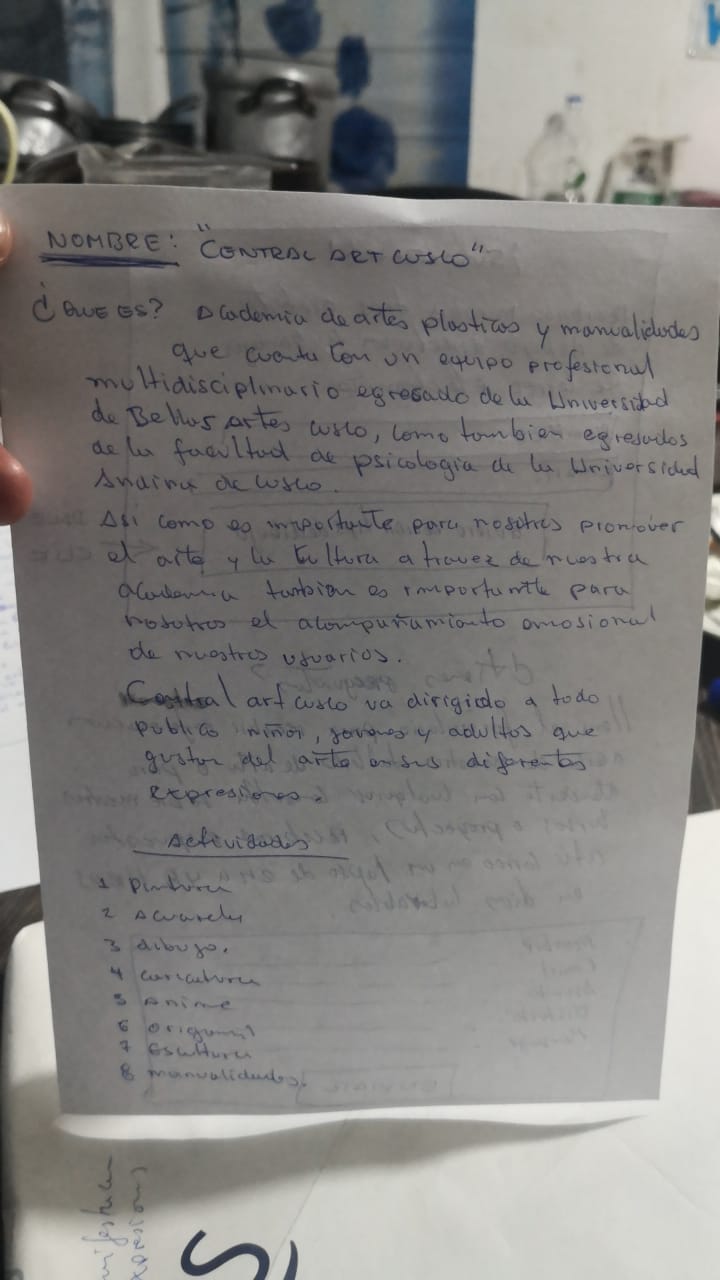 NOMBRE: "CENTRAL ART CUSCO"
¿QUE ES? Academia de artes plasticas y manualidades
que cuenta con un equipo profesional
multidisciplinario egresado de la Universidad
de Bellas Artes Cusco, como tambien egresados
de la facultad de psicologia de la Universidad
Andina de Cusco.
Asi como es importante para nosotros promover
el arte y la cultura a travez de nuestra
academia tambien es importante para
nosotros el acompañamiento emosional
de nuestros usuarios.
Central art cusco va dirigido a todo
publico niños, jovenes y adultos que
gustan del arte en sus diferentes
expresiones.
Actividades
1 Pintura
2 Acuarela
3 dibujo.
4 caricatura
5 Anime
6 origami
7 Escultura
8 manualidades.